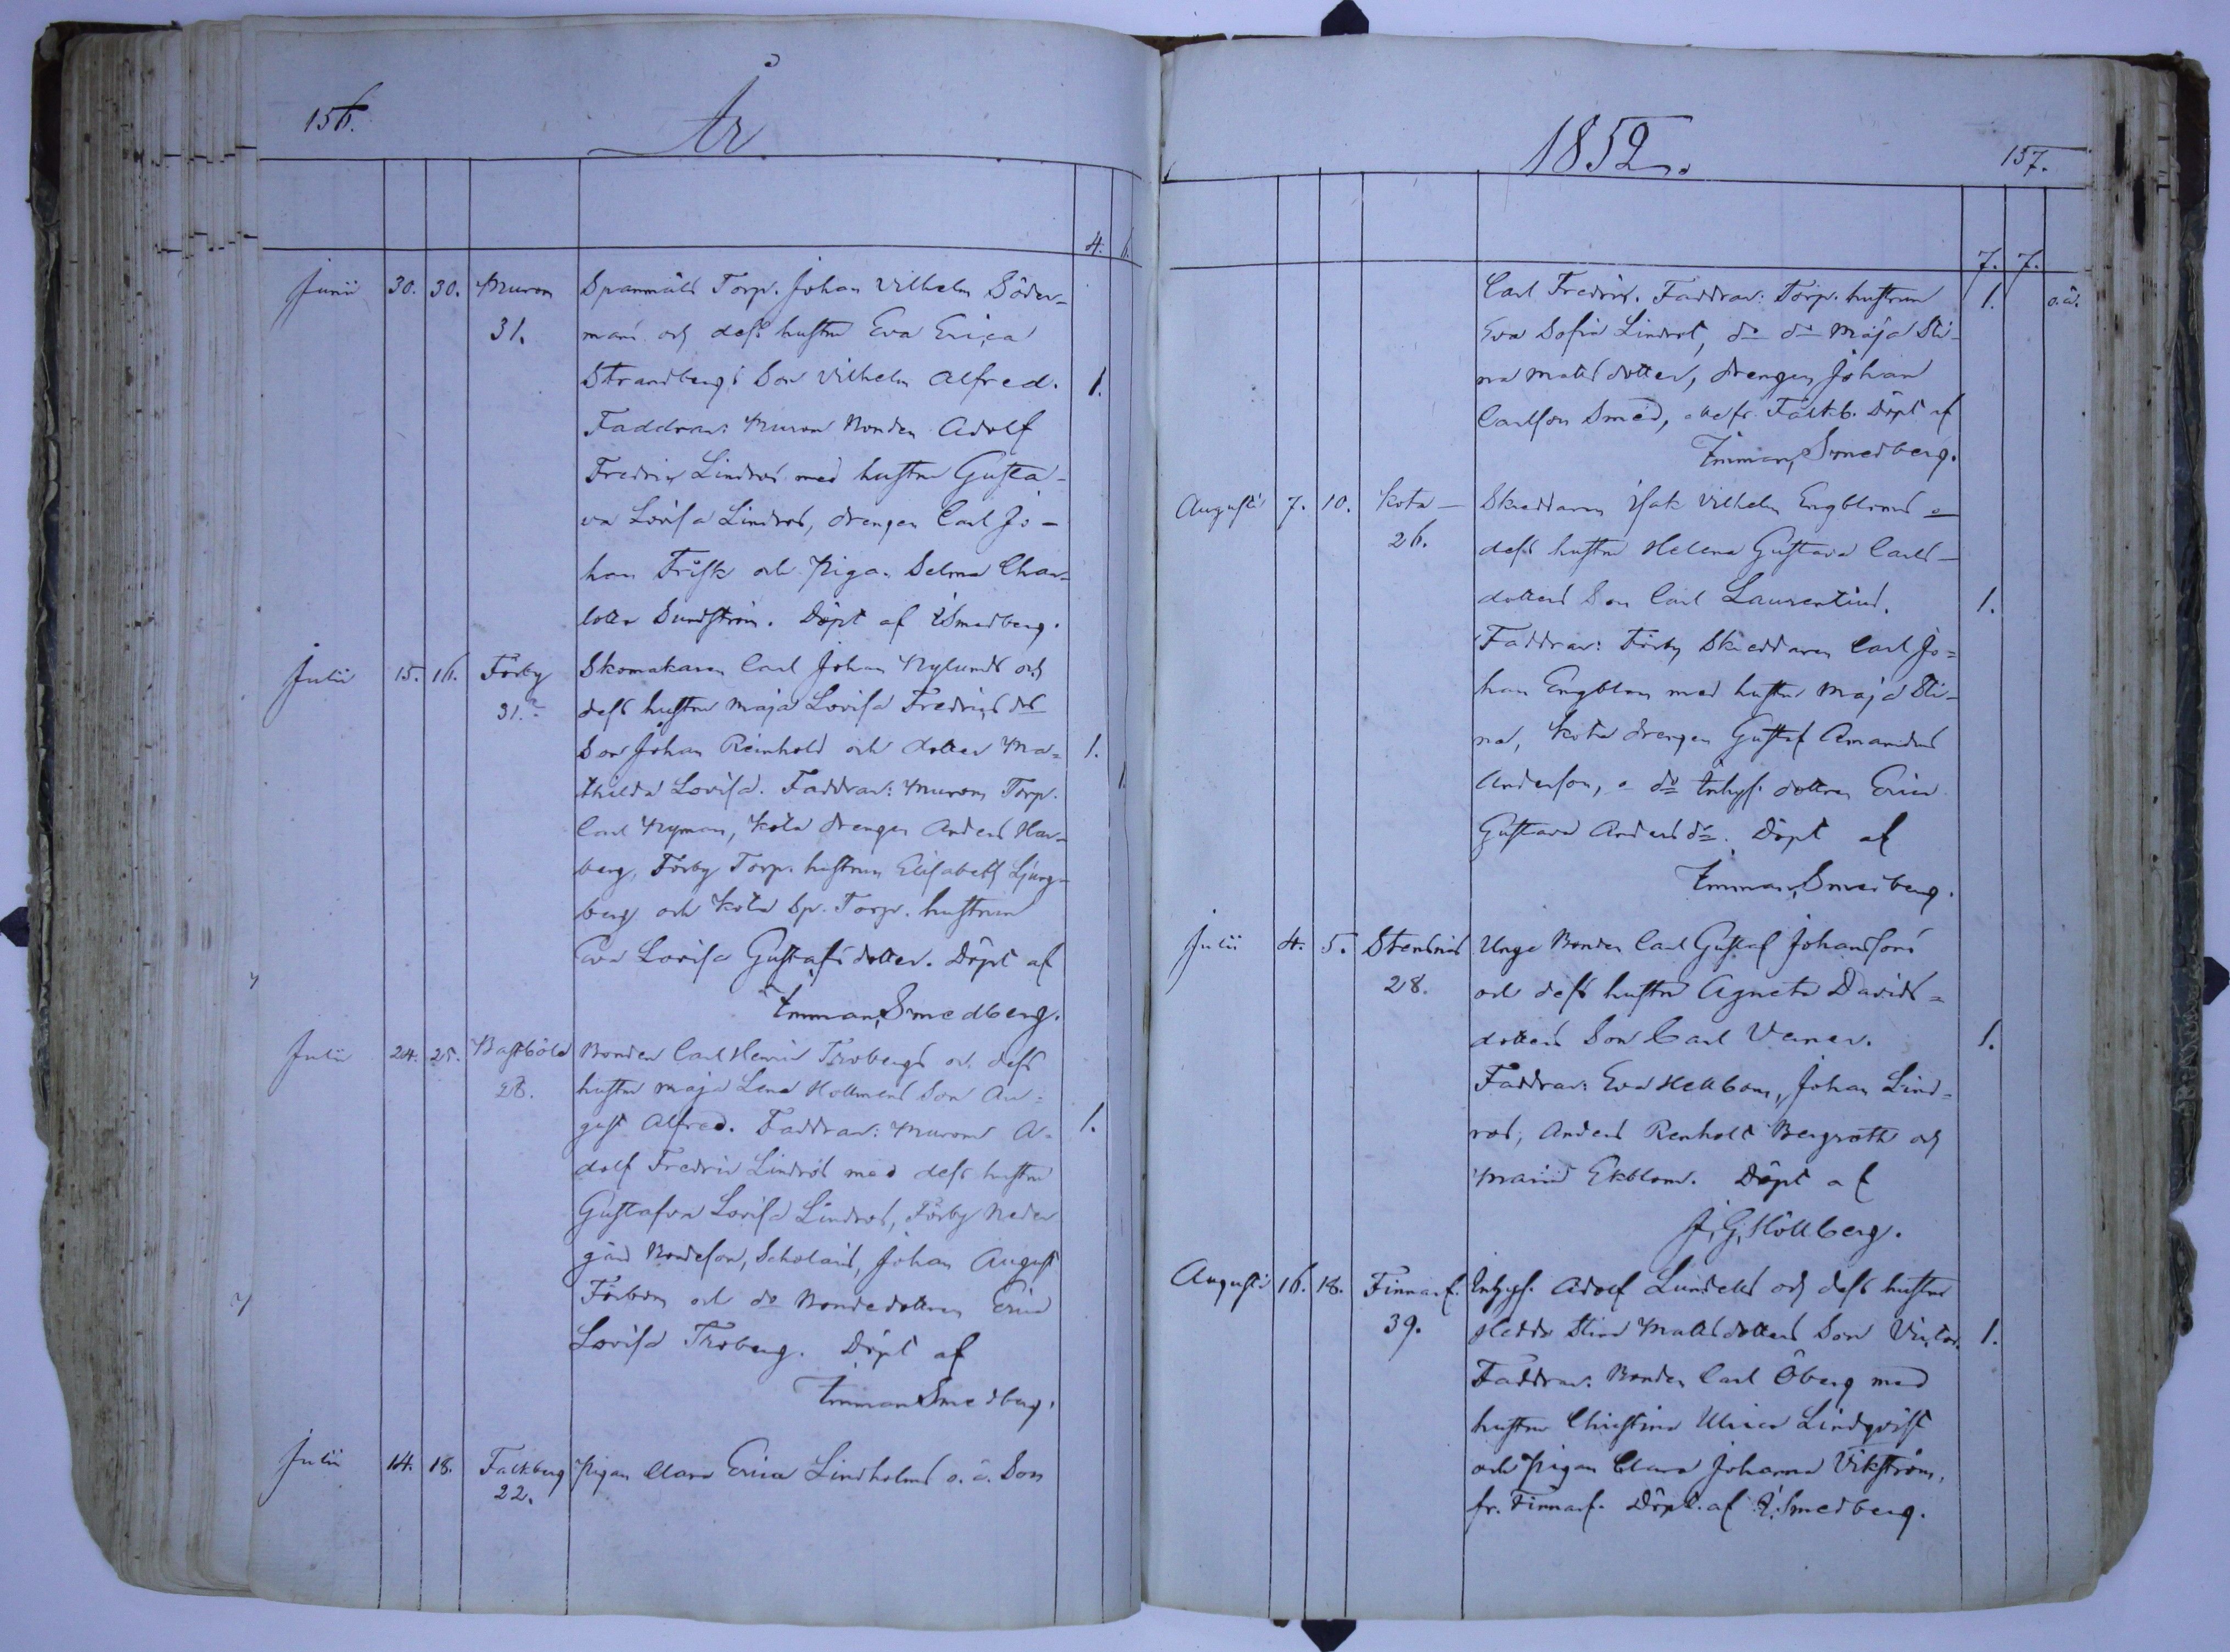 156.
År
4. 6.
Junii 30. 30. Murom Spanmåls Torp. Johan Vilhelm Söder-
31. mans och dess hustru Eva Erica
Strandbergs Son Vilhelm Alfred. 1.
Faddrar: Murom Bonden Adolf
Fredric Lindros med hustru Gusta-
va Lovisa Lindros, drengen Carl Jo-
han Frisk och Pigan Selma Char-
lotta Sundström. Döpt af Smedberg.
Julii 15. 16. Förby Skomakaren Carl Johan Nylunds och
31. dess hustru Maja Lovisa Fredrigs
Son Johan Reinhold och dotter Ma= 1.
thilda Lovisa. Faddrar: Murom Torp. 1.
Carl Nyman, Kota drengen Anders Har-
berg, Förby Torp. hustrun Elisabeth Ljung-
berg och Kota Sp. Torp. hustrun
Eva Lovisa Gustafsdotter. Döpt af
Imman. Smedberg.
Julii 24. 25. Bastböle Bonden Carl Henric Trobergs och dess
28. hustru Maja Lena Hollmens Son Au=
gust Alfred. Faddrar: Murom A- 1.
dolf Fredric Lindros med dess hustru
Gustafva Lovisa Lindros, Förby Neder
gård Bondeson, Scholaris, Johan August
Förbom och do Bondedottren Erica
Lovisa Troberg. Döpt af
Imman Smedberg.
Julii 14. 18. Falkberg Pigan Clara Erica Lindholms o. ä. Son
22.
1852.
157.
7. 7.
Carl Fredric. Faddrar: Torp. hustrun 1. o.ä.
Eva Sofia Lindrot, do do Maja Sti-
na Mattsdotter, drengen Johan
Carlson Smed, alla fr. Falkb. Döpt af
Imman. Smedberg.
Augusti 7. 10. Kota Skreddaren Isak Vilhelm Engbloms o
26. dess hustru Helena Gustava Carls-
dotters Son Carl Laurentius. 1.
Faddrar: Förby Skreddaren Carl Jo=
han Engblom med hustru Maja Sti-
na, Kota drengen Gustaf Amandus
Anderson, o do Inhys. dottren Erica
Gustava Anders dr. Döpt af
Imman. Smedberg.
Julii 4. 5. Stensnäs Unge Bonden Carl Gustaf Johanssons
28. och dess hustru Agneta Davids=
dotters Son Carl Verner. 1.
Faddrar: Eva Hellbom, Johan Lind-
ros, Anders Renholt Bergroth och
Maria Ekblom. Döpt af
J. G. Höllberg.
Augusti 16. 18. Finnarf. Inhys. Adolf Lundells och dess hustru
39. Hedda Stina Mattsdotters Son Victor. 1.
Faddrar: Bonden Carl Öberg med
hustru Christina Ulrica Lindqvist
och Pigan Clara Johanna Vikström,
fr. Finnarf. Döpt. af I. Smedberg.